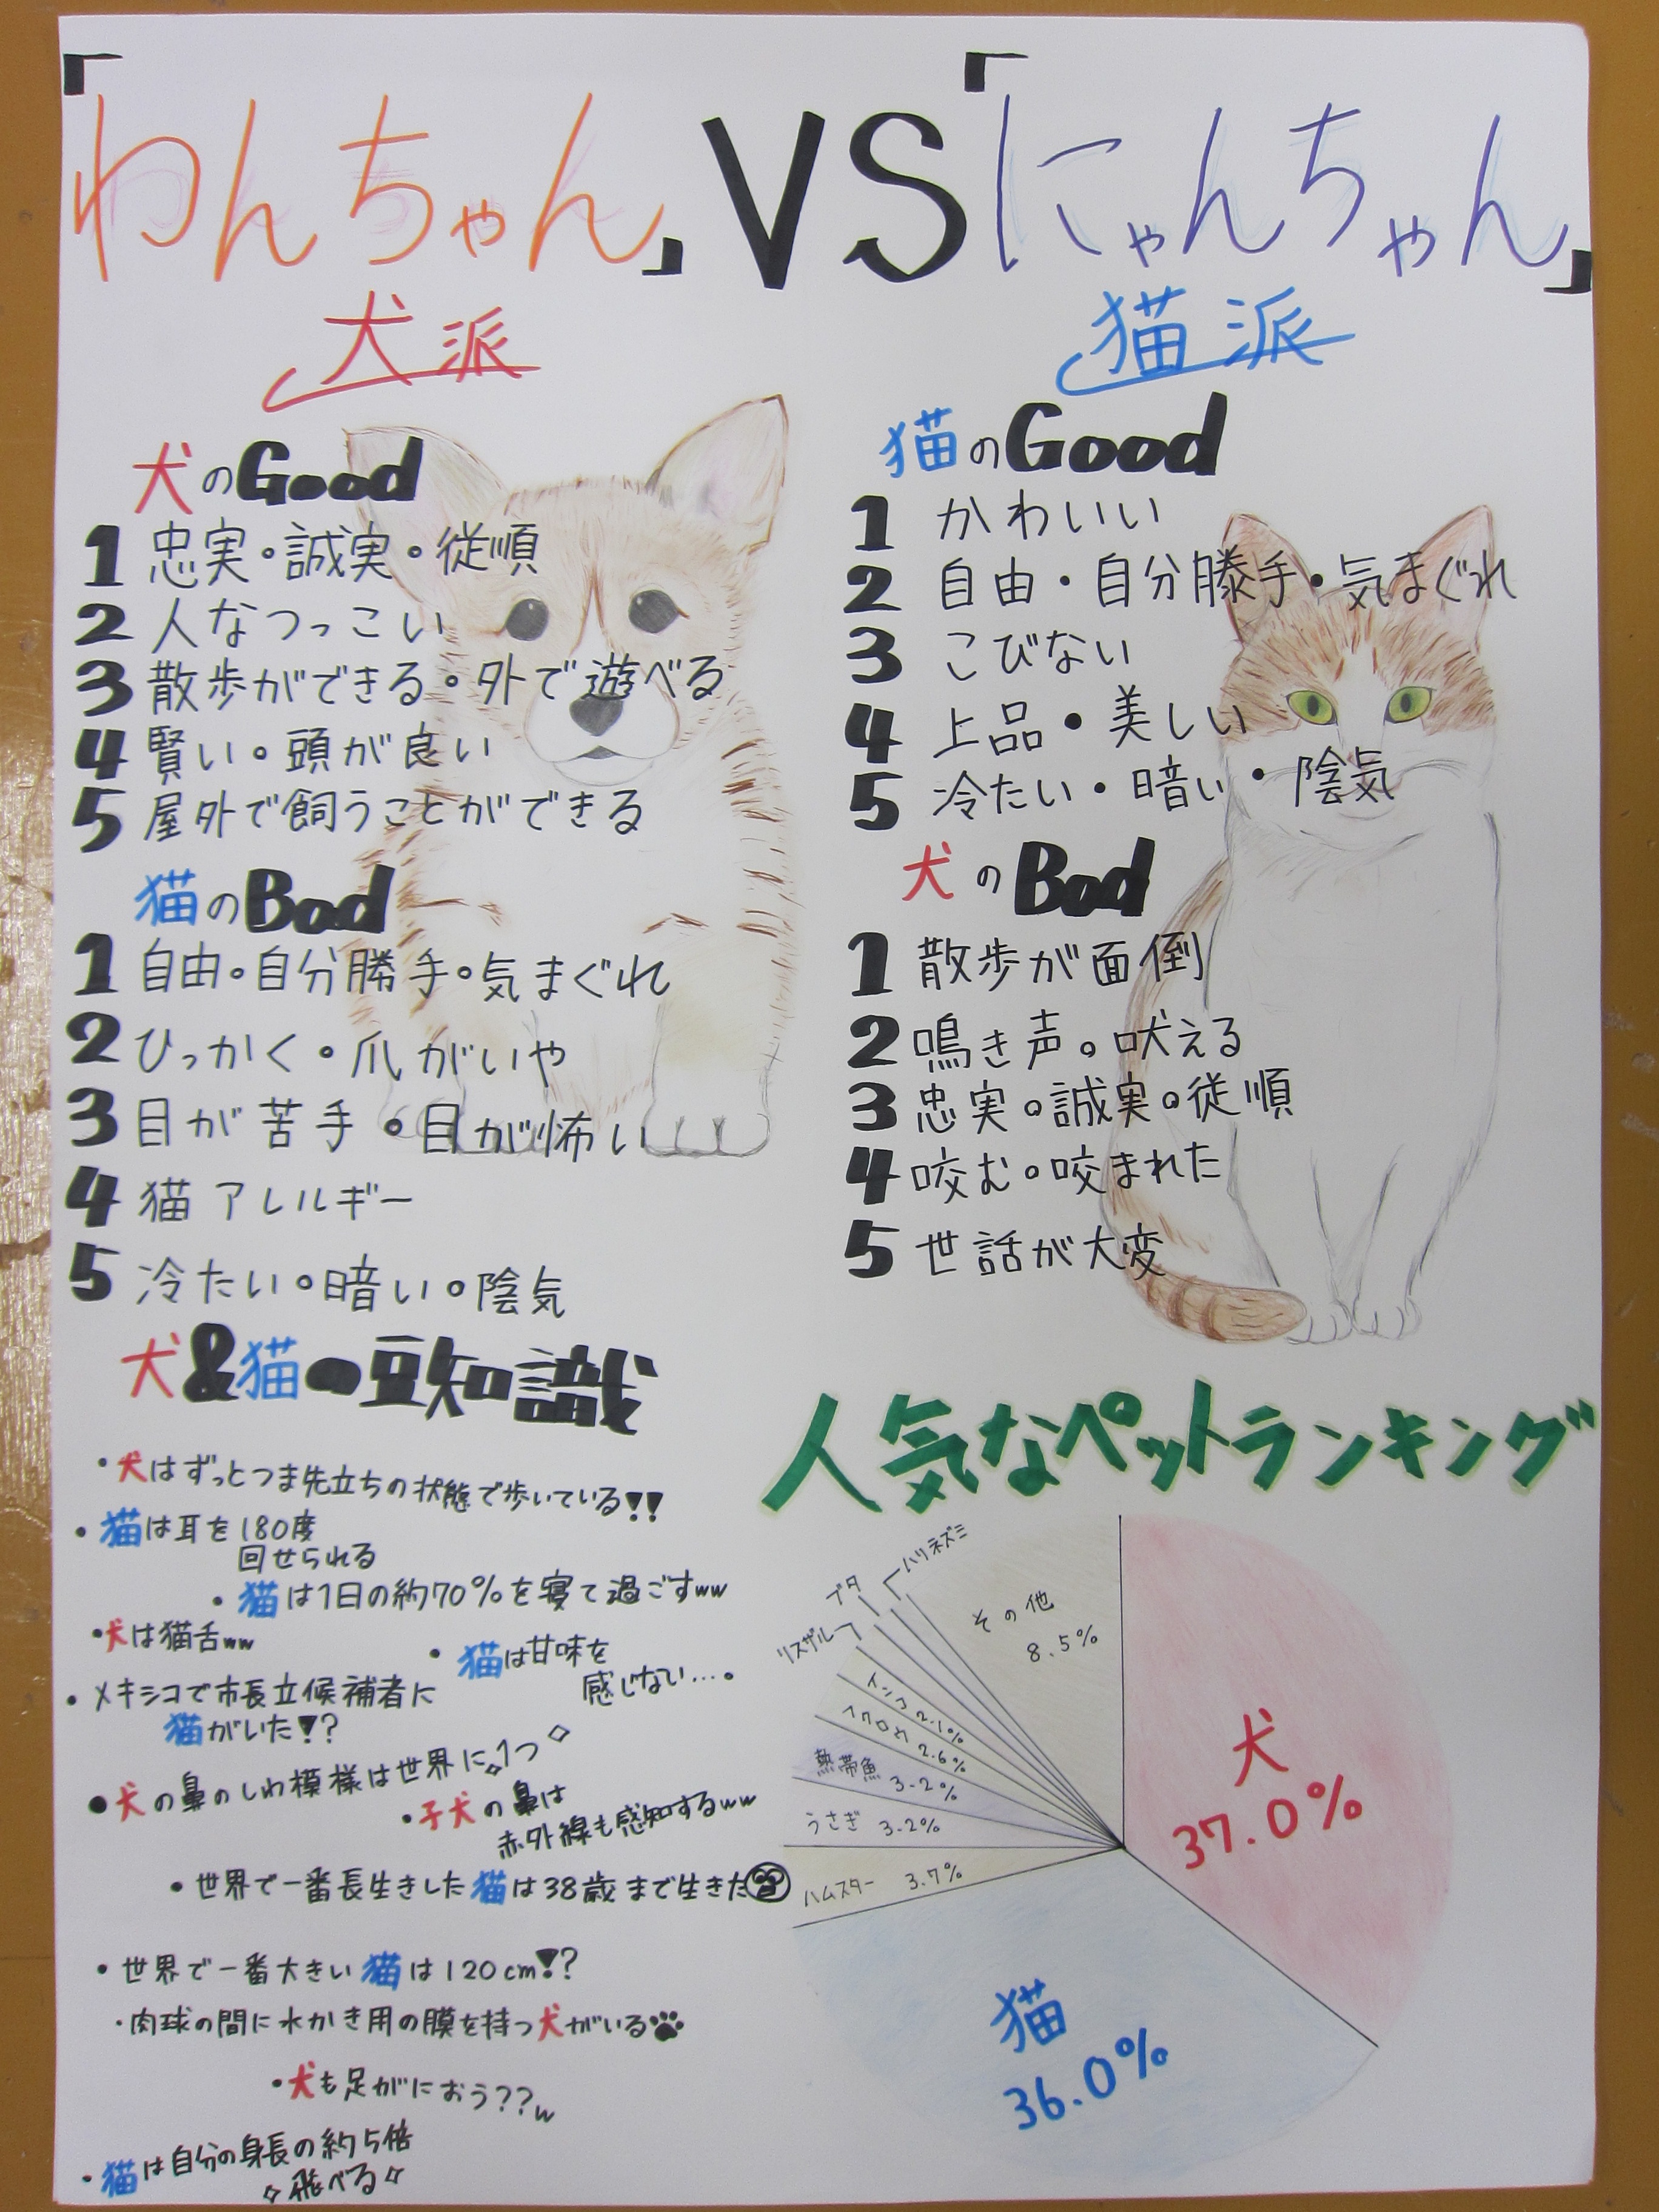 「わんちゃん」VS「にゃんちゃん」
犬派
犬のGood
1 忠実・誠実・従順
2 人なつっこい
3 散歩ができる・外で遊べる
4 賢い・頭が良い
5 屋外で飼うことができる
猫のBad
1 自由・自分勝手・気まぐれ
2 ひっかく・爪がいや
3 目が苦手・目が怖い
4 猫アレルギー
5 冷たい・暗い・陰気
猫派
猫のGood
1 かわいい
2 自由・自分勝手・気まぐれ
3 こびない
4 上品・美しい
5 冷たい・暗い・陰気
犬のBad
1 散歩が面倒
2 鳴き声・吠える
3 忠実・誠実・従順
4 咬む・咬まれた
5 世話が大変
犬&猫の豆知識
・犬はずっとつま先立ちの状態で歩いている!!
・猫は耳を180度
回せられる
・猫は1日の約70%を寝て過ごすww
・犬は猫舌ww
・猫は甘味を
感じない…。
・メキシコで市長立候補者に
猫がいた!?
●犬の鼻のしわ模様は世界に1つ
・子犬の鼻は
赤外線も感知するww
・世界で一番長生きした猫は38歳まで生きた
・世界で一番大きい猫は120cm!?
・肉球の間に水かき用の膜を持つ犬がいる
・犬も足がにおう??w
・猫は自分の身長の約5倍
飛べる
人気なペットランキング
犬
37.0%
猫
36.0%
ハムスター 3.7%
うさぎ 3.2%
熱帯魚 3.2%
フクロウ 2.6%
インコ 2.1%
リスザル
ブタ
ハリネズミ
その他
8.5%